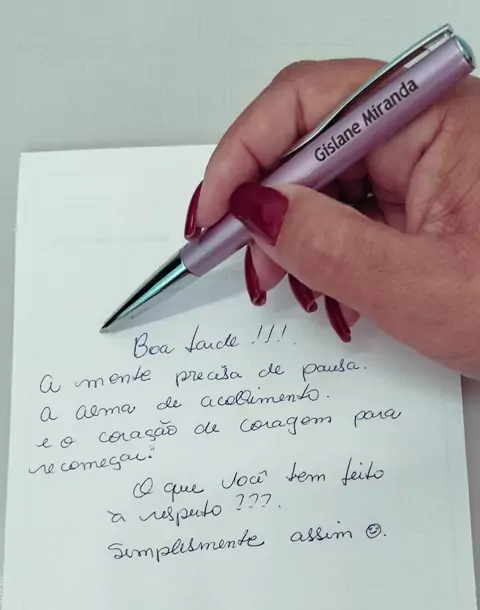 Gislane Miranda
Boa tarde!!!.
A mente precisa de pausa.
A alma de acolhimento.
e o coração de coragem para
recomeçar.
O que você tem feito
a respeito???.
Simplesmente assim ☺.